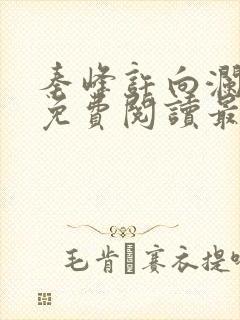 秦峰許向瀾
免費閱讀最
毛肯賽衣提